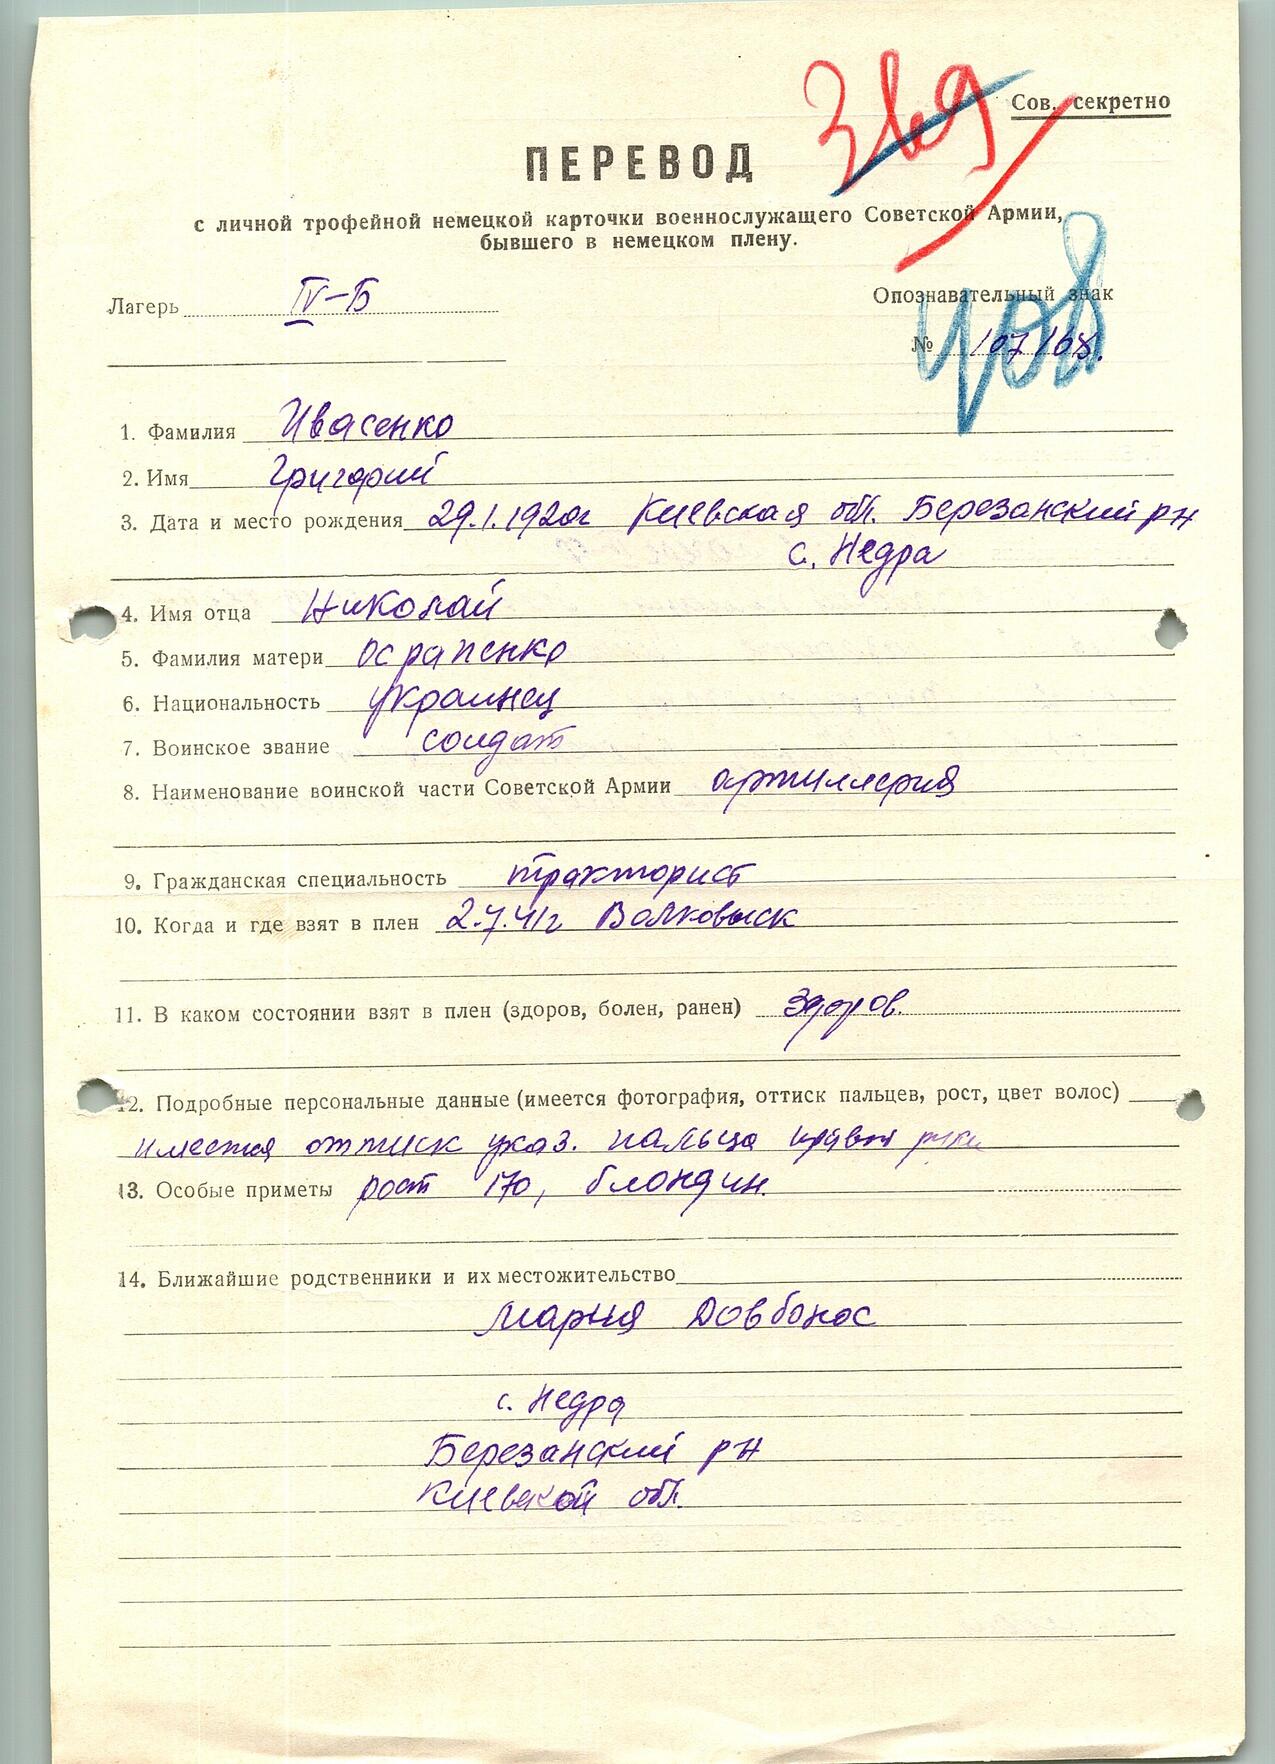 369
Сов. секретно
ПЕРЕВОД
с личной трофейной немецкой карточки военнослужащего Советской Армии,
бывшего в немецком плену.
Лагерь IV-Б
Опознавательный знак
№ 107168.
408
1. Фамилия Ивасенко
2. Имя Григорий
3. Дата и место рождения 29.1.1920г Киевская обл. Березанский рн
с. Недра
4. Имя отца Николай
5. Фамилия матери
6. Национальность украинец
7. Воинское звание солдат
8. Наименование воинской части Советской Армии артиллерия
9. Гражданская специальность тракторист
10. Когда и где взят в плен 2.7.41г Волковыск
11. В каком состоянии взят в плен (здоров, болен, ранен) здоров.
12. Подробные персональные данные (имеется фотография, оттиск пальцев, рост, цвет волос)
имеется оттиск указ. пальца правой руки
13. Особые приметы рост 170, блондин.
14. Ближайшие родственники и их местожительство
Мария Довбонос
с. Недра
Березанский рн
Киевской обл.